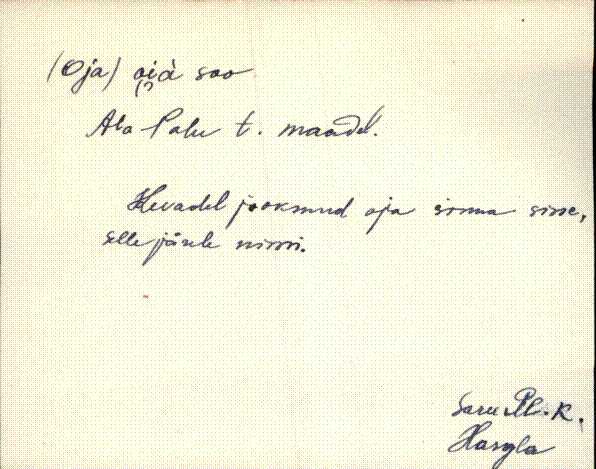 (Oja) oià soo
Ala-Palu t. maadel.
Kevadel jooksnud oja sinna sisse,
selle järele nimi.
Saru
Hargla